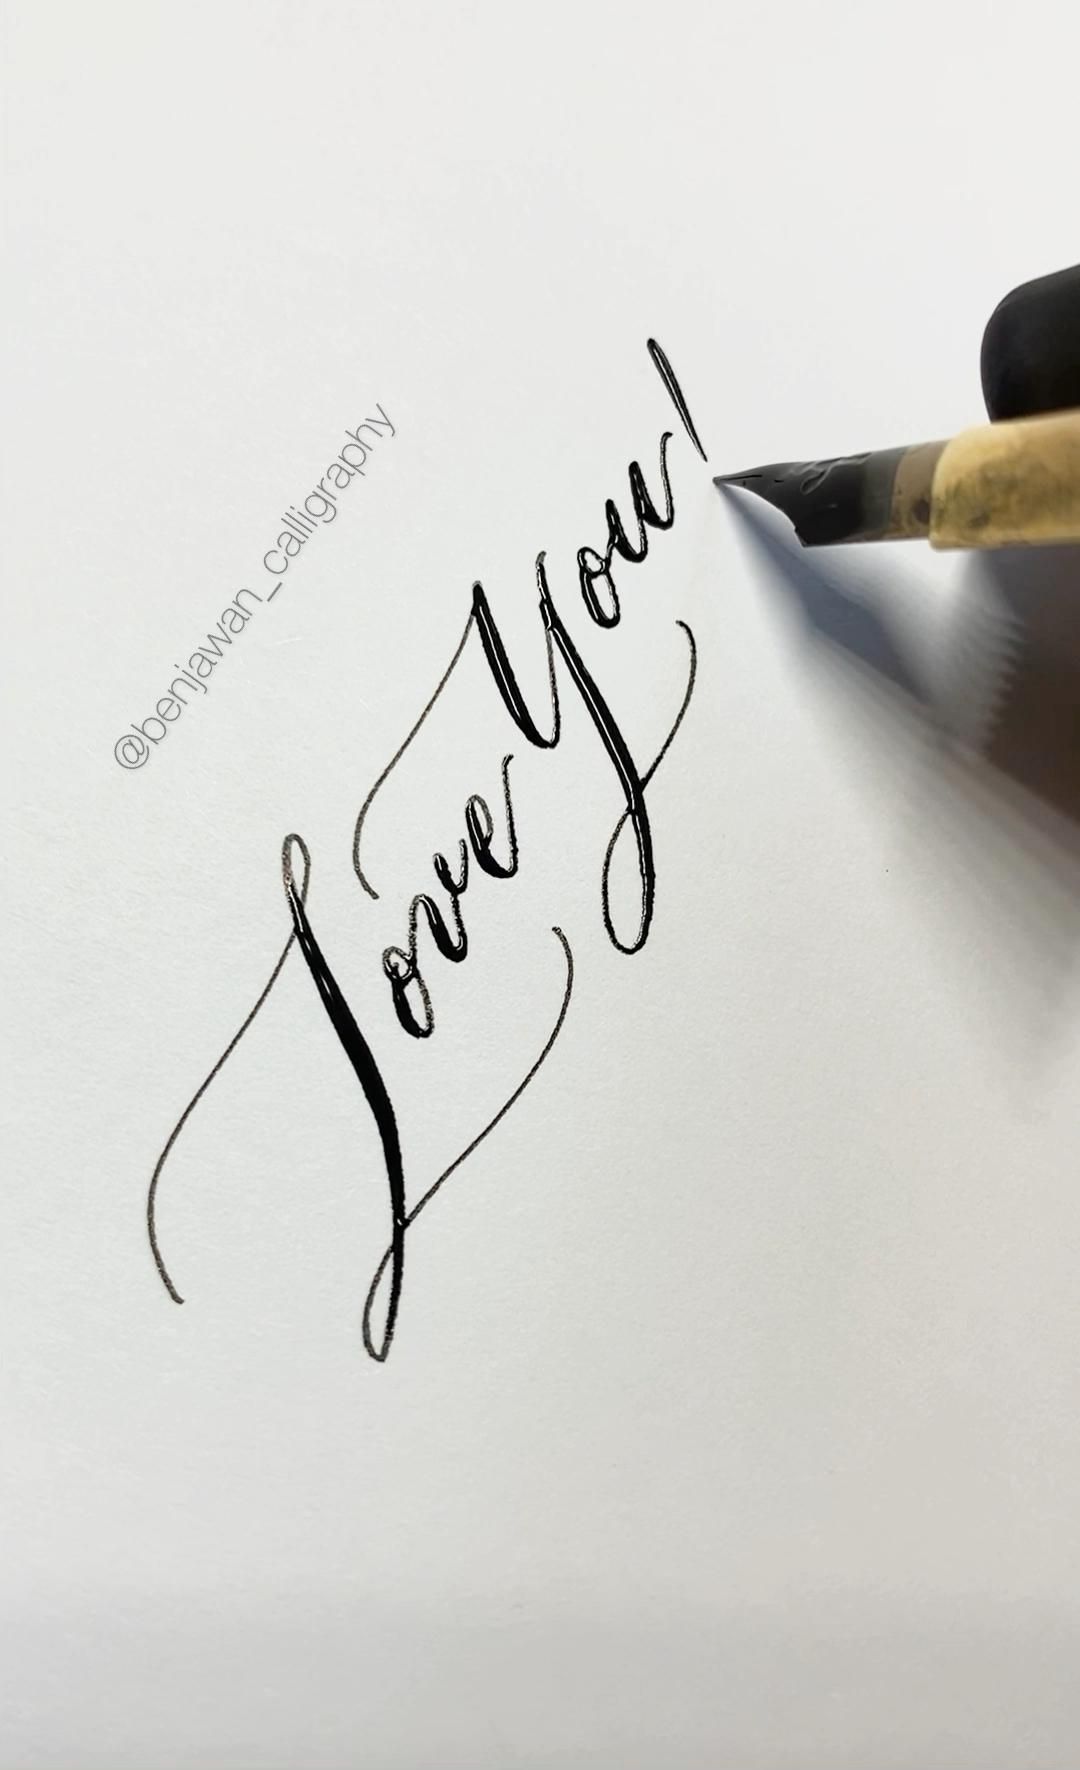 @benjawan_calligraphy
Love You!